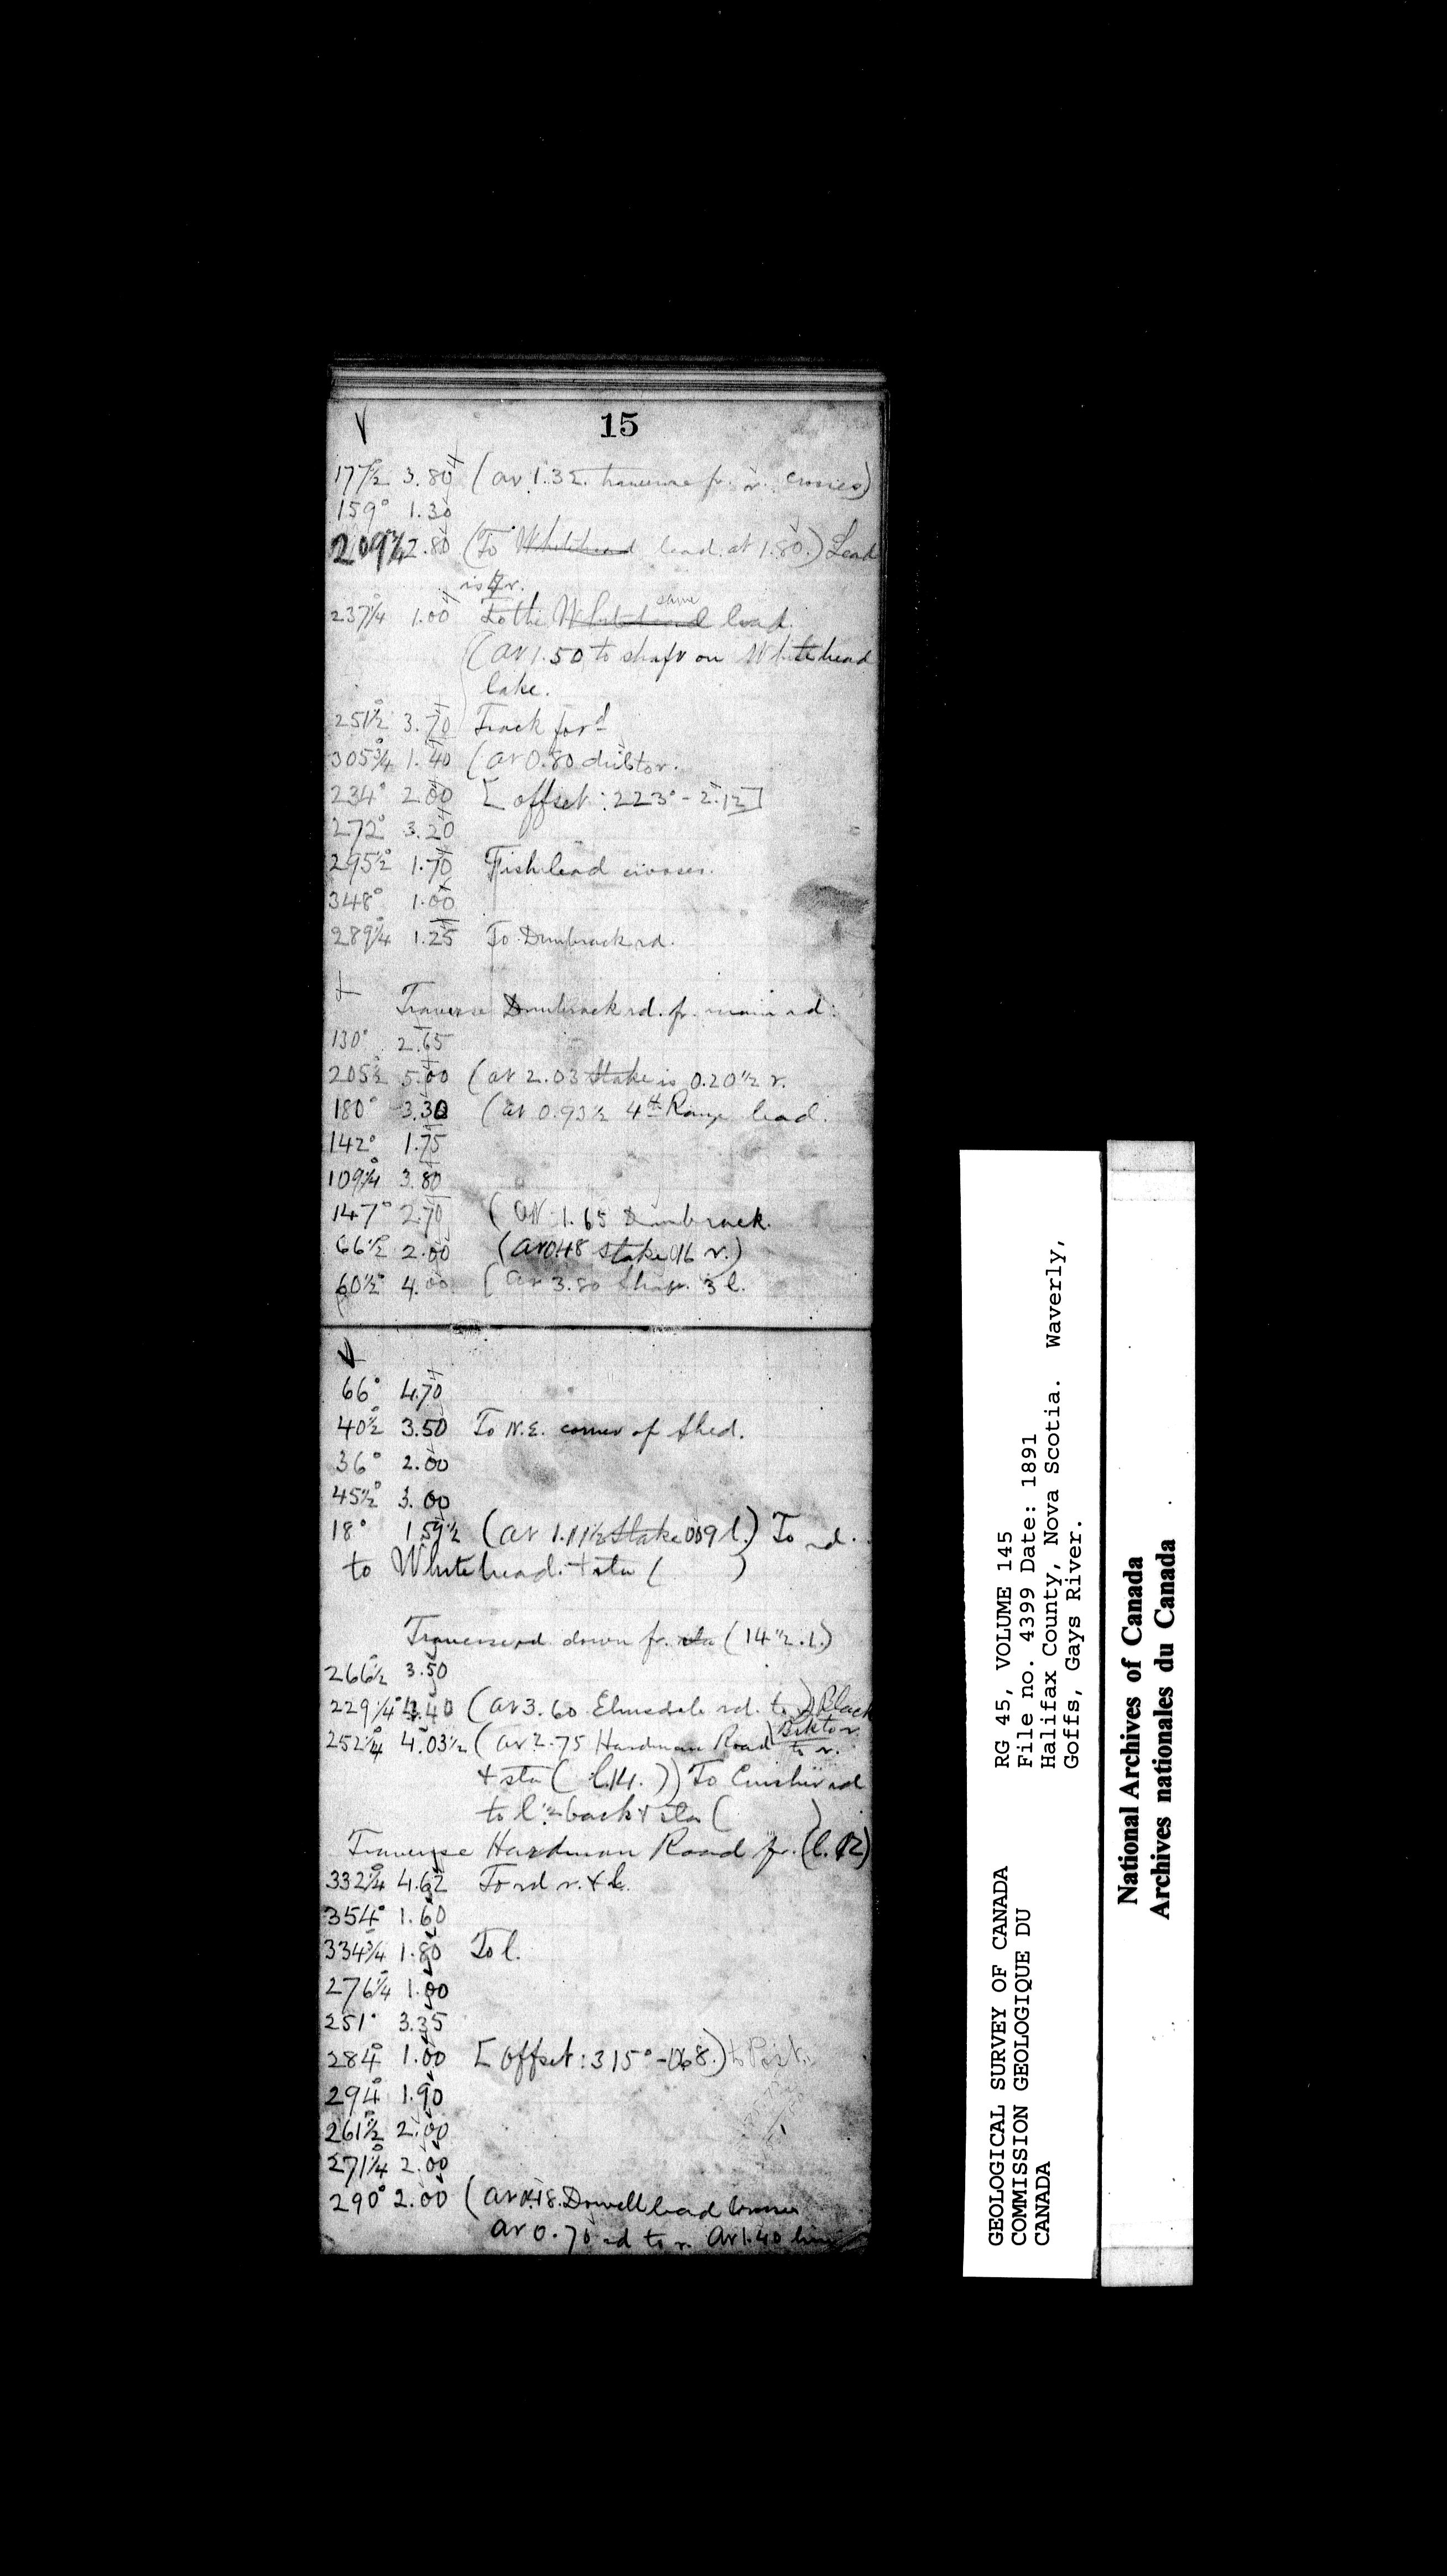 15
177½ 3.80 (at 1.32 traverse fr. r. crosses)
159° 1.30
209¾ 2.80 (To Whitehead lead at 1.80.) Lead
is 7 r.
237¼ 1.00 To the Whitehead same lead.
(at 1.50 to shaft on Whitehead
lake.
251½ 3.70 Track ford
305¾ 1.40 (at 0.80 to r.
234° 2.00 [offset: 223° - 2.12]
272° 3.20
295½° 1.70 Fish lead crosses.
348° 1.00
289¼ 1.25 To Dumbrack rd.
Traverse Dumbrack rd. fr. main rd:
130° 2.65
205½ 5.00 (at 2.03 Stake is 0.20½ r.
180° 3.30 (at 0.93½ 4th Range lead.
142° 1.75
109¼ 3.80
147° 2.70 (at 1.65 Dumbrack.
66½ 2.00 (at 0.48 stake 016 r.)
60½° 4.00 (at 3.80 Shaft 3 l.
66° 4.70
40½ 3.50 To N.E. corner of Shed.
36° 2.00
45½° 3.00
18° 1.59½ (at 1.11½ Stake 009 l.) To rd.
to Whitehead. + sta ( )
Traverse rd down fr. sta (14½.l.)
266½ 3.50
229¼° 4.40 (at 3.60 Elmsdale rd. to r) Black
252¼ 4.03½ (at 2.75 Hardman Road to r.
+ sta ( l.14. )) To Crusher rd
to l & back + sta ( )
Traverse Hardman Road fr. (l. 12)
332¼ 4.62 To rd r. & l.
354° 1.60
334¾ 1.80 To l.
276¼ 1.00
251° 3.35
284° 1.00 [offset: 315° - 068.) to Post.
294° 1.90
261½ 2.00
271¼ 2.00
290° 2.00 (at 0.48. Dowell lead crosses
at 0.70 rd to r. At 1.40
GEOLOGICAL SURVEY OF CANADA
COMMISSION GEOLOGIQUE DU
CANADA
RG 45, VOLUME 145
File no. 4399 Date: 1891
Halifax County, Nova Scotia. Waverly,
Goffs, Gays River.
National Archives of Canada
Archives nationales du Canada